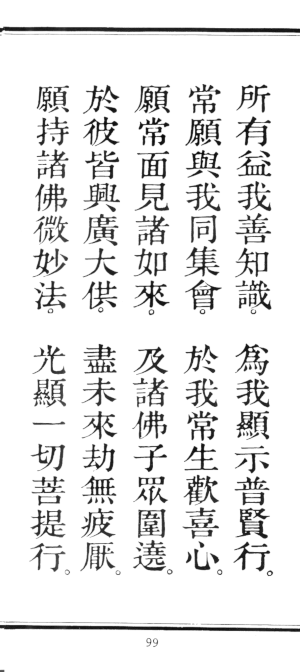 所有益我善知識。為我顯示普賢行。
常願與我同集會。於我常生歡喜心。
願常面見諸如來。及諸佛子眾圍遶。
於彼皆興廣大供。盡未來劫無疲厭。
願持諸佛微妙法。光顯一切菩提行。
99